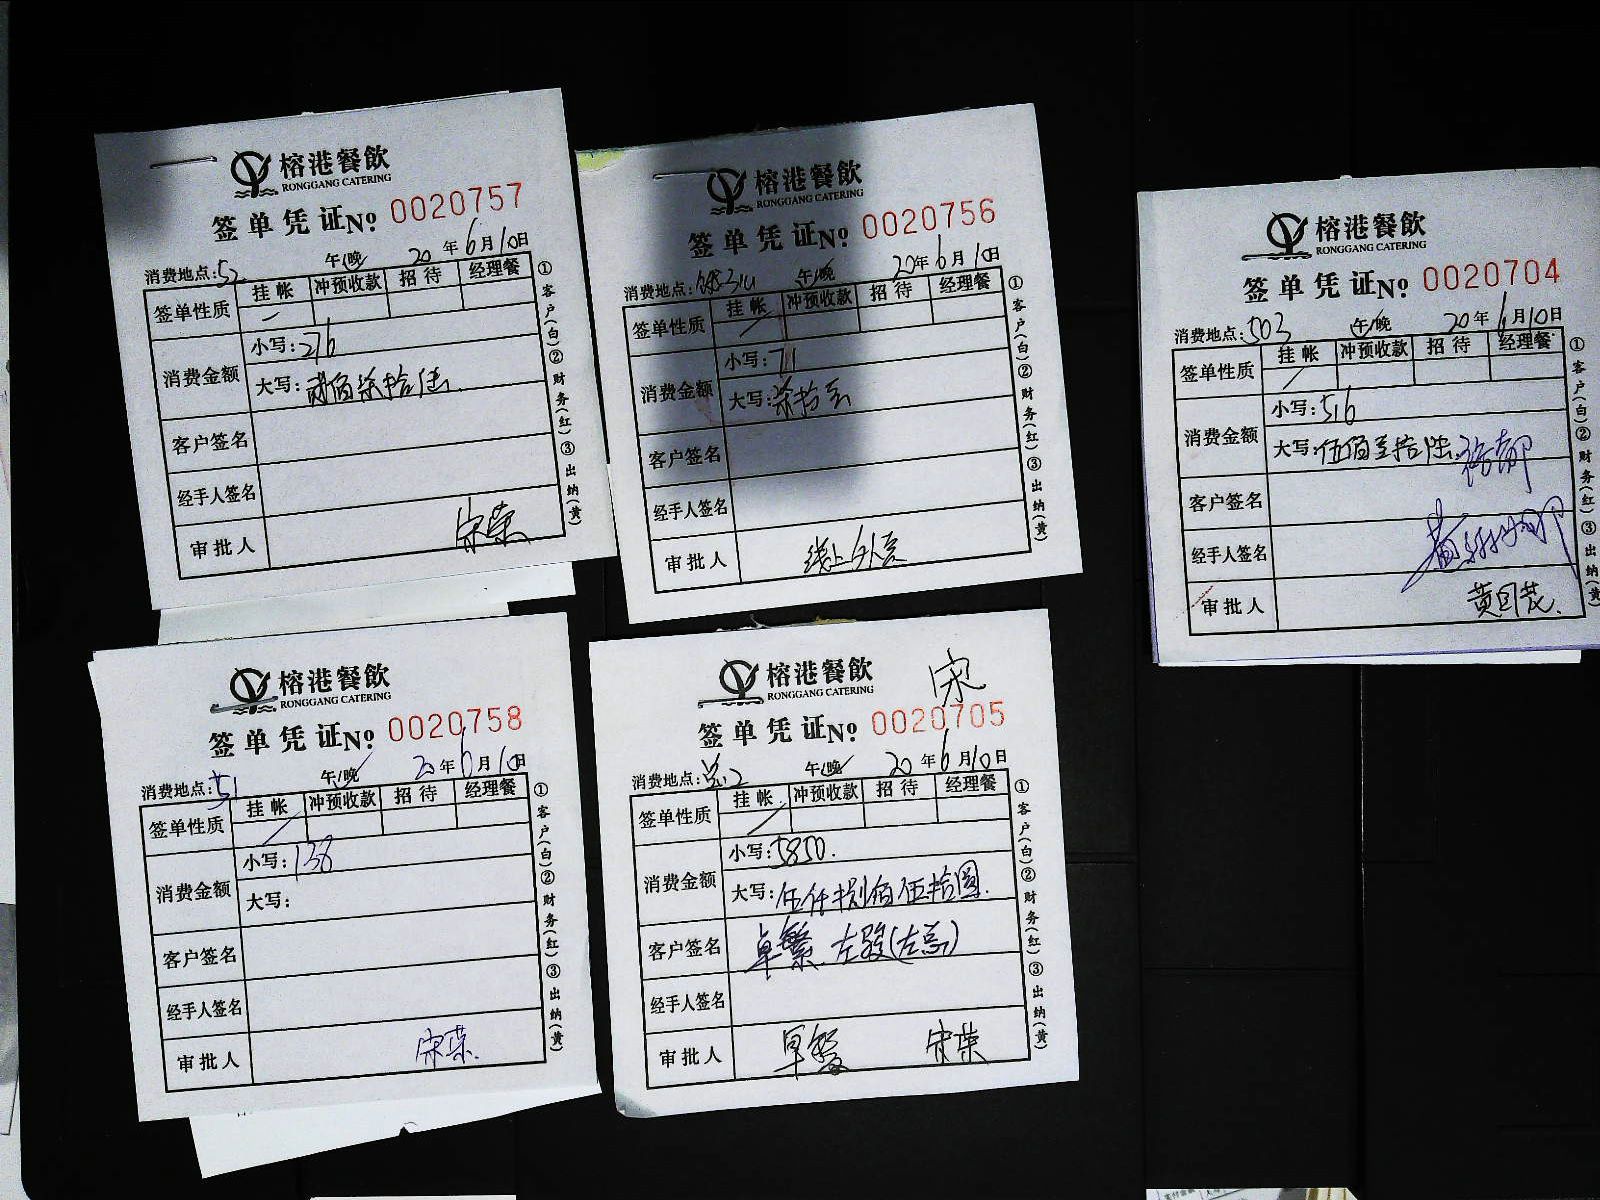 榕港餐飲
RONGGANG CATERING
签单凭证No. 0020757
消费地点: 52 午/晚 20年6月10日
签单性质 挂帐 冲预收款 招待 经理餐
消费金额 小写: 276
大写:
客户签名
经手人签名
审批人 宋荣
①客户(白)②财务(红)③出纳(黄)
榕港餐飲
RONGGANG CATERING
签单凭证No. 0020756
消费地点: 午/晚 20年6月10日
签单性质 挂帐 冲预收款 招待 经理餐
消费金额 小写: 71
大写:
客户签名
经手人签名
审批人 线上外卖
①客户(白)②财务(红)③出纳(黄)
榕港餐飲
RONGGANG CATERING
签单凭证No. 0020704
消费地点: 503 午/晚 20年6月10日
签单性质 挂帐 冲预收款 招待 经理餐
消费金额 小写: 516
大写: 伍佰壹拾陆
客户签名
经手人签名
审批人 黄国茂.
①客户(白)②财务(红)③出纳(黄)
榕港餐飲
RONGGANG CATERING
签单凭证No. 0020758
消费地点: 51 午/晚 20年6月10日
签单性质 挂帐 冲预收款 招待 经理餐
消费金额 小写: 138
大写:
客户签名
经手人签名
审批人 宋荣.
①客户(白)②财务(红)③出纳(黄)
榕港餐飲 宋
RONGGANG CATERING
签单凭证No. 0020705
消费地点: 总2 午/晚 20年6月10日
签单性质 挂帐 冲预收款 招待 经理餐
消费金额 小写: 5850.
大写: 伍仟捌佰伍拾圆.
客户签名 卓繁. 左骏(左总)
经手人签名
审批人 宋荣
①客户(白)②财务(红)③出纳(黄)